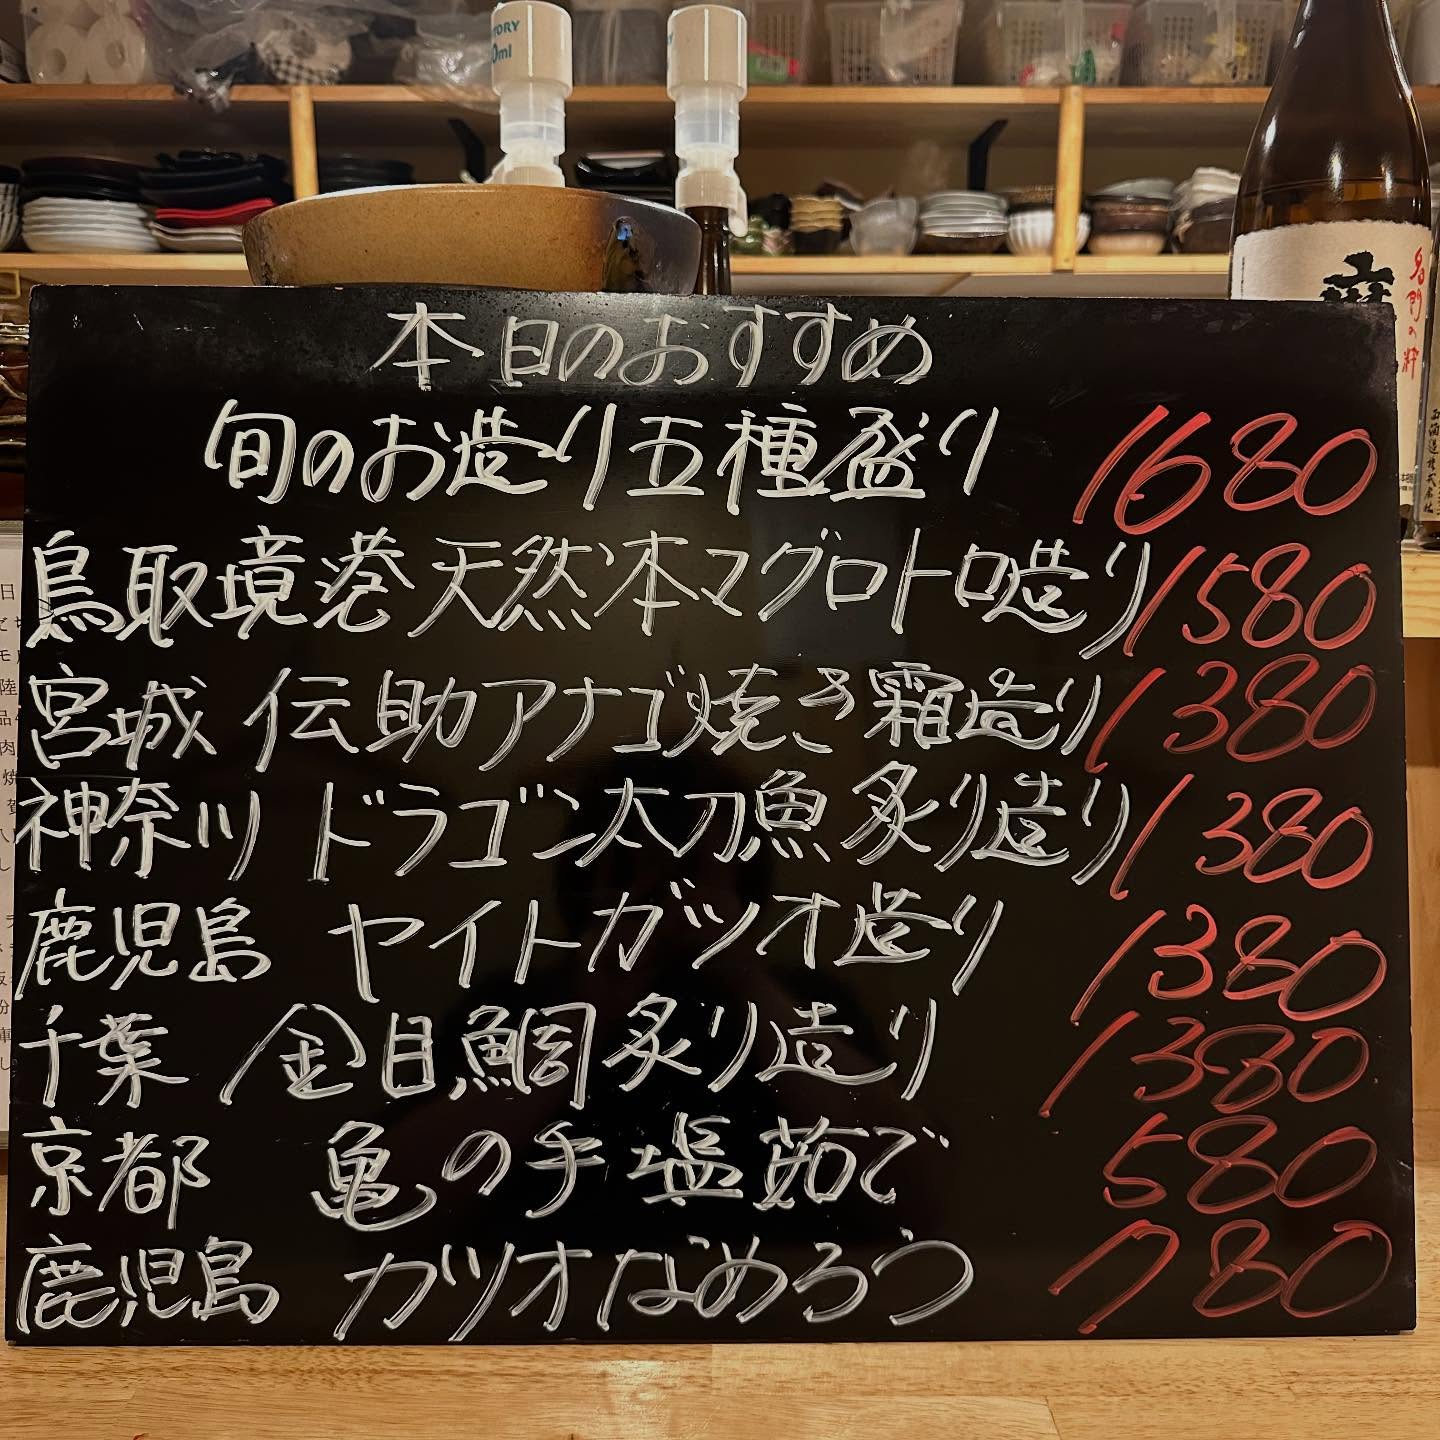 本日のおすすめ
旬のお造り五種盛り 1680
鳥取境港天然本マグロトロ造り 1580
宮城 伝助アナゴ焼き霜造り 1380
神奈川 ドラゴン太刀魚炙り造り 1380
鹿児島 ヤイトガツオ造り 1380
千葉 金目鯛炙り造り 1380
京都 亀の手塩茹で 580
鹿児島 カツオなめろう 780
名門の粋